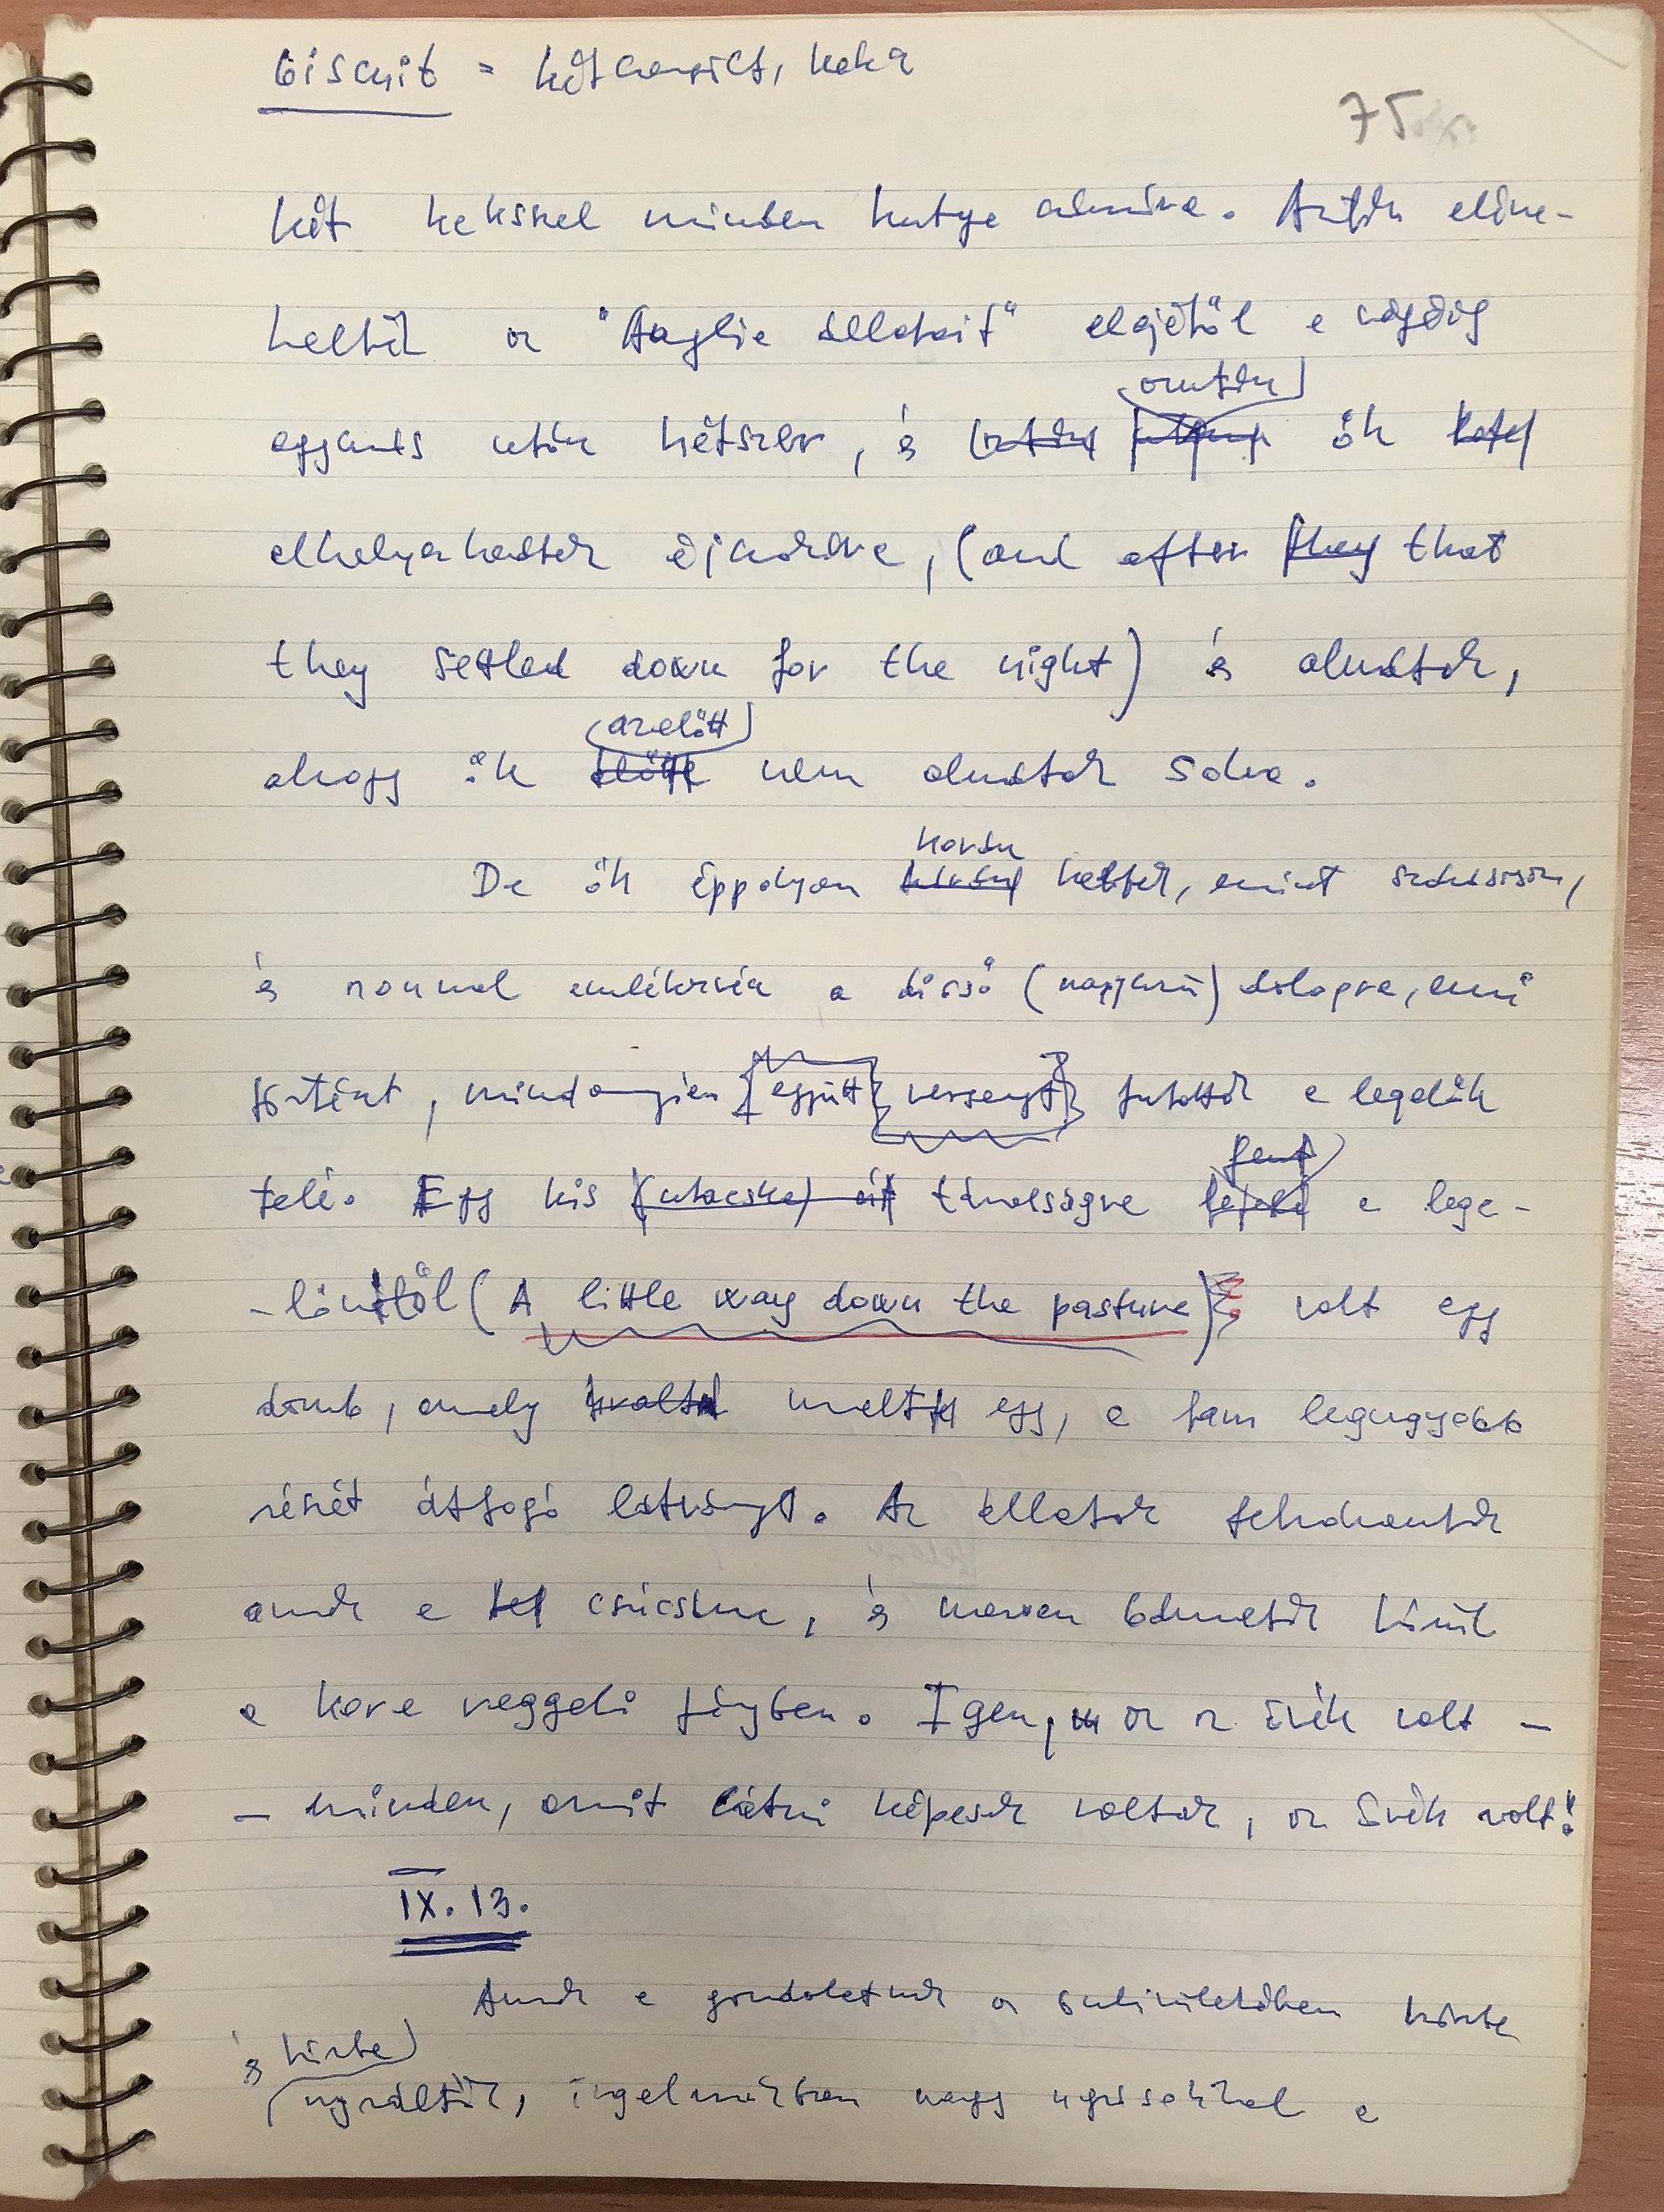 biscuit = kétszersült, keksz
75
két keksszel minden kutya számára. Aztán eléne-
kelték az "Anglia állatait" elejétől a végéig
egymás után hétszer, és (aztán
azután
ők
elhelyezkedtek éjszakára, (and after they that
they settled down for the night) és aludtak,
(azelőtt)
ahogy ők előtte nem aludtak soha.
korán
De ők éppolyan keltek, mint szokásosan,
és azonnal emlékezvén a dicső (nagyszerű) dologra, ami
történt, mindannyian együtt versenyt futottak a legelők
felé. Egy kis (utacska) távolságra
fent
a lege-
-lőktől (A little way down the pasture) volt egy
domb, amely egy, a farm legnagyobb
részét átfogó látványt. Az állatok felrohantak
annak a tet csúcsára, és merően bámultak körül
a kora reggeli fényben. Igen, ez az övék volt -
- minden, amit látni képesek voltak, az övék volt!
IX. 13.
Annak a gondolatnak az önkívületében körbe
és körbe
ugráltak, izgalmukban nagy ugrásokkal a